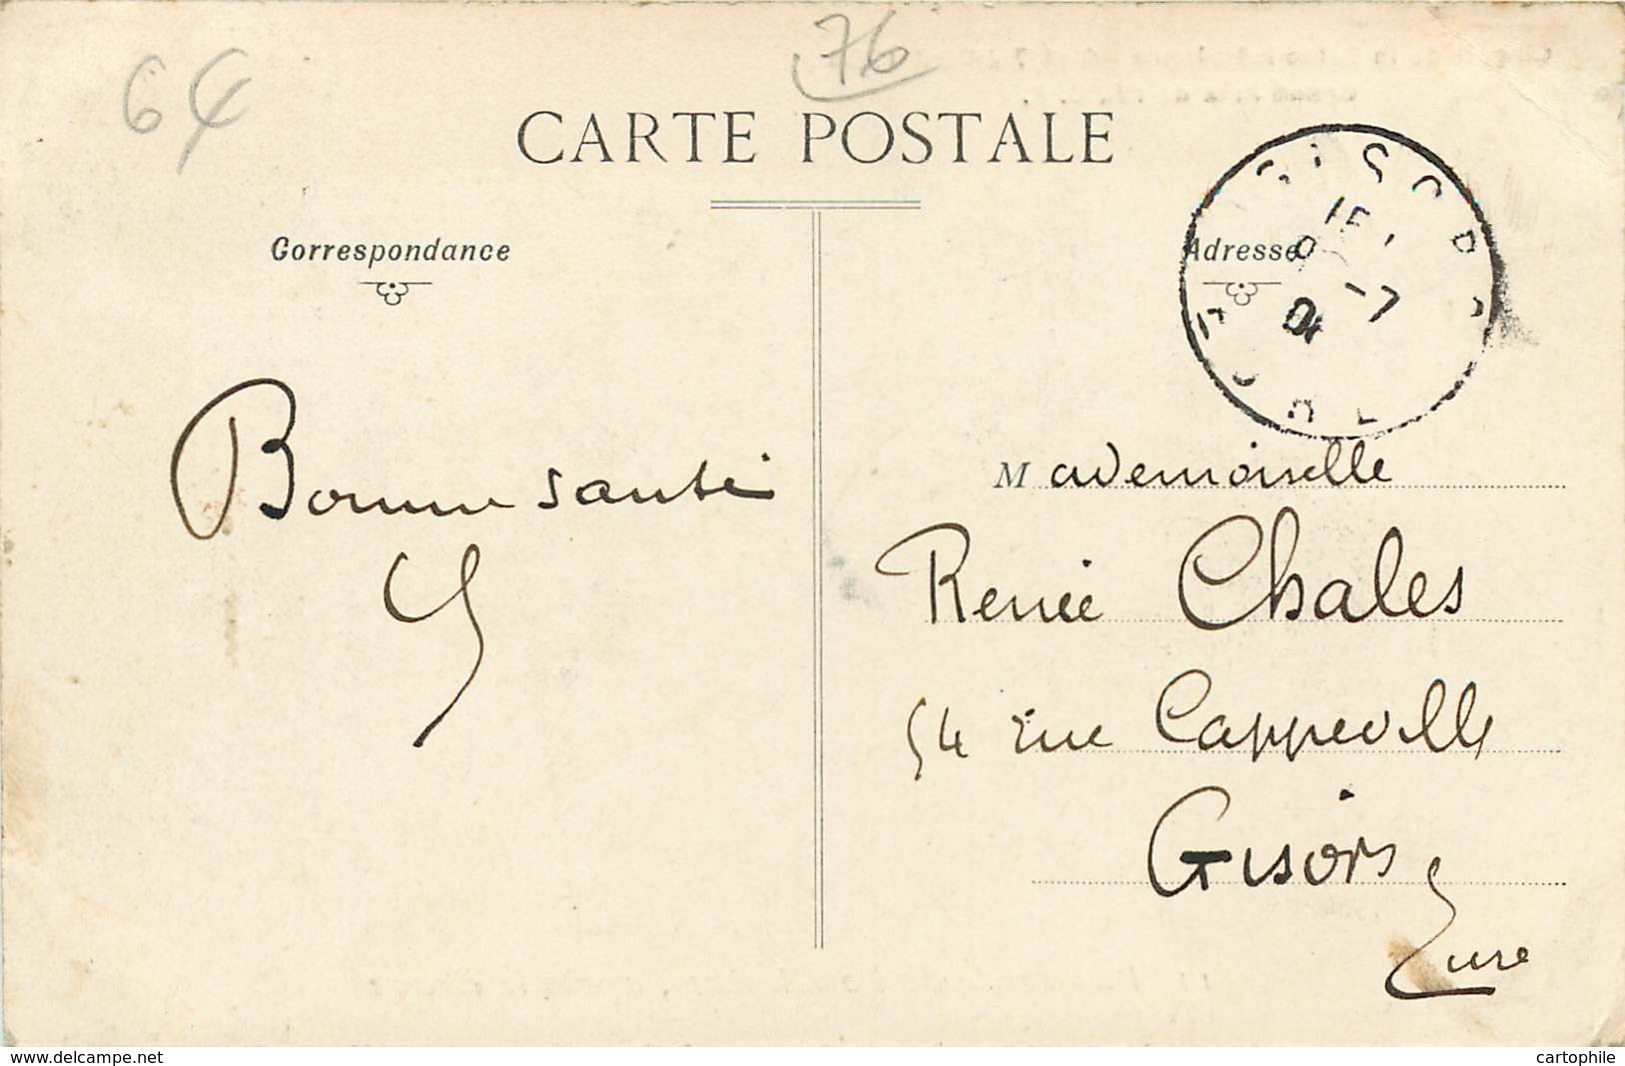 64
76
CARTE POSTALE
Correspondance
Adresse
GISORS
15
-7
07
EURE
Bonne santé
Mademoiselle
Renée Chales
54 rue Cappeville
Gisors
Eure
www.delcampe.net
cartophile